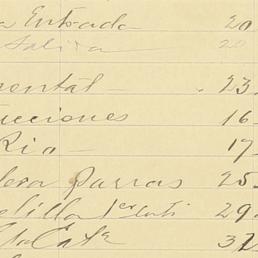 a Entrada 20
Salida 20
mental 23
ucciones 16
Rio 17
lera Parras 25
lilla 1er 29
Sta Cata 32